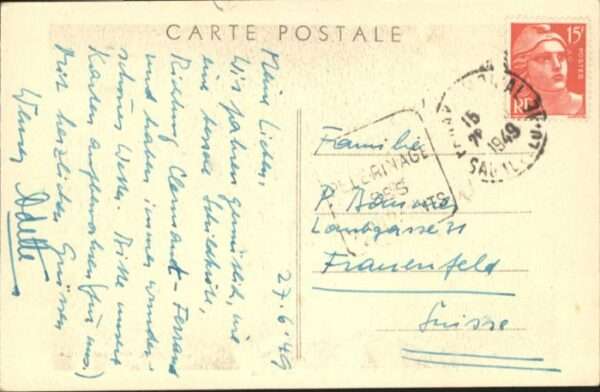 CARTE POSTALE
27.6.49
Meine Lieben,
Wir fahren gemütlich, wie
eine Schildkröte,
Richtung Clermont-Ferrand
und haben immer wunder-
schönes Wetter. Bitte unsere
Karten aufbewahren (für uns.)
Mit herzlichen Grüssen
Werner Odette
15F
POSTES
RF
15
1949
PELERINAGE
DES
Familie
P.
Laubgasse 31
Frauenfeld
Suisse